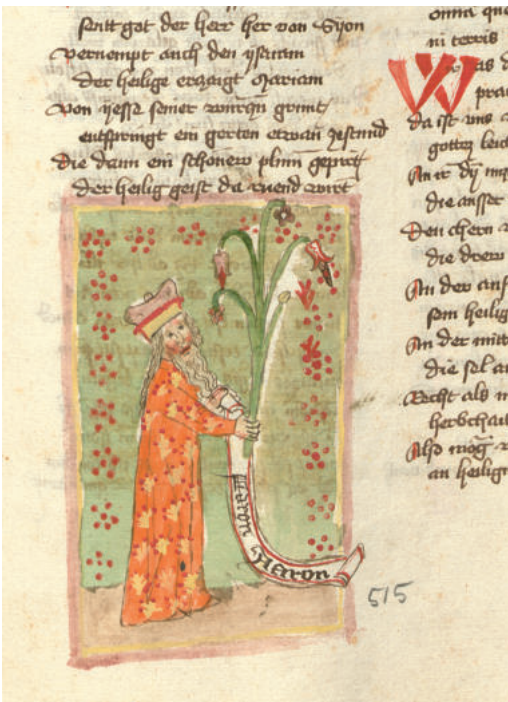 sentt got der herr her von Syon
vernempt auch den ysaiam
Der heilige erzaigt Mariam
Von yesse seiner wurczn grunt
entspringt ein gerten etwan gestund
Die dann ein schonew plum gepirt
Der heilig geist da ruend wirt
Aaron
Aaron
515
omnia que
in terris
Was d
da ist uns
gottes
An ir dy
die ausser
Den chern
die drew
An der auss
sein heilig
An der mitt
die sel an
Recht als
Also mog
an heilig